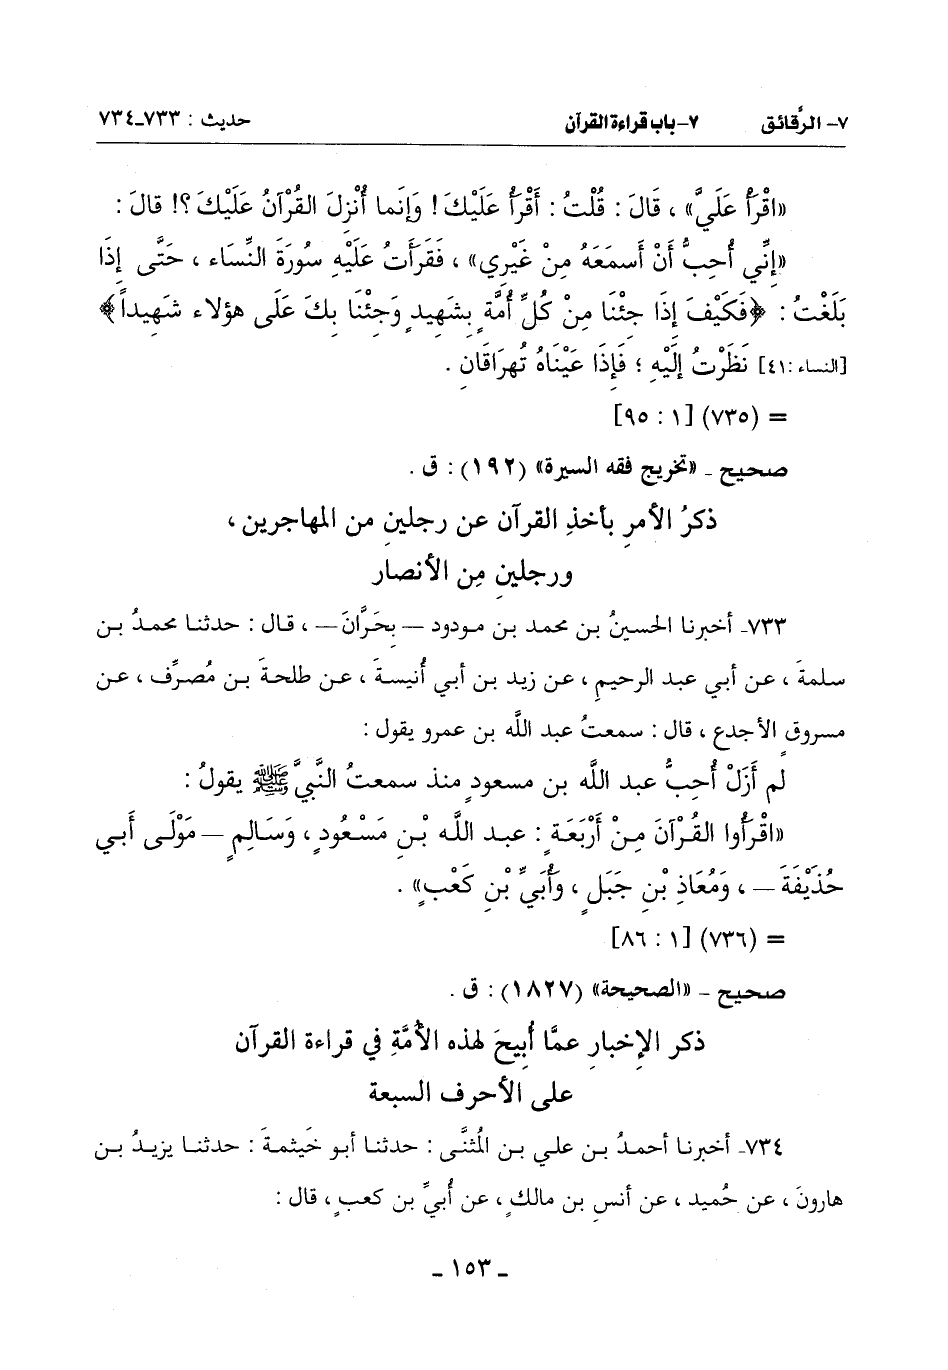 ٧- الرَّقائق ٧-باب قراءة القرآن حديث : ٧٣٣-٧٣٤
«اقْرَأْ عَلَيَّ» ، قَالَ : قُلْتُ : أَقْرَأُ عَلَيْكَ ! وَإِنَما أُنْزِلَ القُرْآنُ عَلَيْكَ ؟! قالَ :
«إنِّي أُحِبُّ أَنْ أَسمَعَهُ مِنْ غَيْرِي» ، فَقَرَأتُ عَلَيْهِ سُورَةَ النِّسَاء ، حَتَّى إِذَا
بَلَغْتُ : ﴿فَكَيْفَ إِذَا جِئْنَا مِنْ كُلِّ أُمَّةٍ بِشَهِيدٍ وَجِئْنَا بِكَ عَلَى هؤلاءِ شَهِيداً﴾
[النساء :٤١] نَظَرْتُ إلَيْهِ ؛ فَإِذَا عَيْنَاهُ تُهرَاقَانِ .
= (٧٣٥) [١ : ٩٥]
صحيح ـ «تخريج فقه السيرة» (١٩٢) : ق .
ذكرُ الأمرِ بأخذِ القرآن عن رجلينِ من المهاجرين ،
ورجلينِ مِن الأنصار
٧٣٣ـ أخبرنا الحسينُ بن محمد بن مودود — بِحَرَّانَ — ، قال : حدثنا محمدُ بن
سلمةَ ، عن أبي عبد الرحيمِ ، عن زيد بن أبي أُنيسةَ ، عن طلحةَ بن مُصرِّف ، عن
مسروقٍ الأجدعِ ، قال : سمعتُ عبد اللَّه بن عمرو يقول :
لم أَزَلْ أُحِبُّ عبد اللَّه بن مسعودٍ منذ سمعتُ النَّبيَّ ﷺ يقولُ :
«اقْرَأُوا القُرْآنَ مِنْ أَرْبَعَةٍ : عبد اللَّه بْنِ مَسْعُودٍ ، وَسَالِمٍ — مَوْلَى أَبي
حُذَيْفَةَ — ، وَمُعَاذِ بْنِ جَبَلٍ ، وأُبَيِّ بْنِ كَعْبٍ» .
= (٧٣٦) [١ : ٨٦]
صحيح ـ «الصحيحة» (١٨٢٧) : ق .
ذكر الإخبارِ عمَّا أُبيحَ لهذه الأُمَّةِ في قراءة القرآن
على الأحرف السبعة
٧٣٤ـ أخبرنا أحمدُ بن علي بن المُثنَّى : حدثنا أبو خَيثمةَ : حدثنا يزيدُ بن
هارونَ ، عن حُميد ، عن أنسِ بن مالكٍ ، عن أُبيِّ بن كعبٍ ، قال :
ـ ١٥٣ ـ